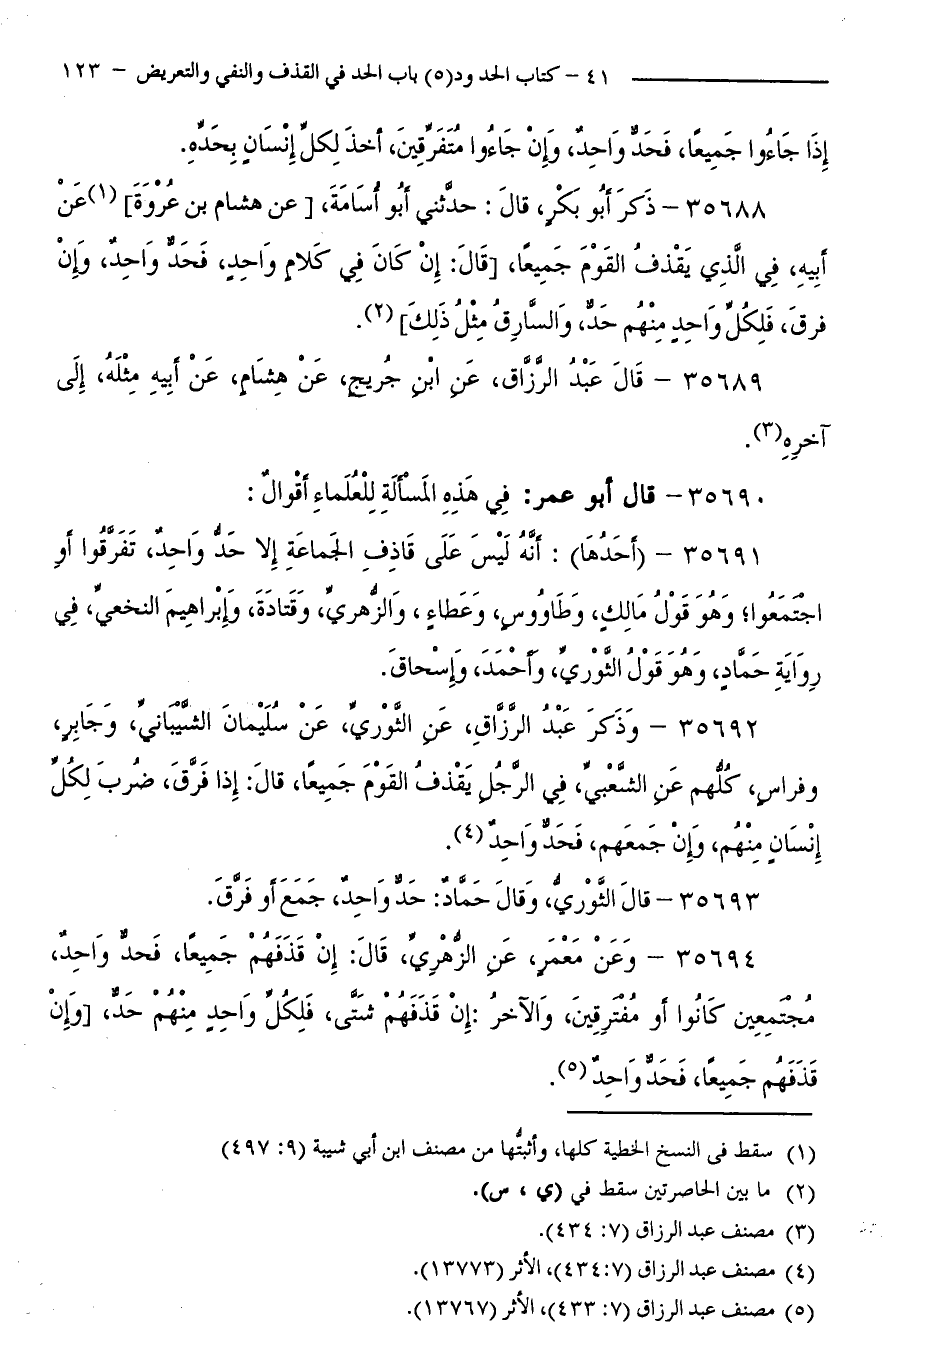 ٤١ – كتاب الحدود (٥) باب الحد في القذف والنفي والتعريض – ١٢٣
إِذَا جَاءُوا جَمِيعًا، فَحَدٌّ وَاحِدٌ، وَإِنْ جَاءُوا مُتَفَرِّقِينَ، أخذَ لِكلِّ إِنْسَانٍ بِحَدِّهِ.
٣٥٦٨٨ – ذَكَرَ أَبُو بَكْرٍ، قالَ : حدَّثني أَبُو أُسَامَةَ، [ عن هشام بن عُرْوَةَ] (١) عَنْ
أبيهِ، فِي الَّذِي يَقْذفُ القَوْمَ جَمِيعًا، [قَالَ: إِنْ كَانَ فِي كَلامٍ وَاحِدٍ، فَحَدٌّ وَاحِدٌ، وَإِنْ
فرقَ، فَلِكُلِّ وَاحِدٍ مِنْهُم حَدٌّ، وَالسَّارِقُ مِثْلُ ذَلِكَ] (٢).
٣٥٦٨٩ – قَالَ عَبْدُ الرَّزَّاقِ، عَنِ ابْنِ جُرِيجٍ، عَنْ هِشَامٍ، عَنْ أَبِيهِ مِثْلَهُ، إِلَى
آخرِهِ (٣).
٣٥٦٩٠ – قال أبو عمر: فِي هَذِهِ المَسأَلَةِ لِلْعُلَماءِ أَقْوالٌ :
٣٥٦٩١ – (أَحَدُهَا) : أَنَّهُ لَيْسَ عَلَى قَاذِفِ الجَماعَةِ إِلا حَدٌّ وَاحِدٌ، تَفَرَّقُوا أَوِ
اجْتَمَعُوا؛ وَهُوَ قَوْلُ مَالِكٍ، وَطَاوُوسٍ، وَعَطَاءٍ ، وَالزُّهريِّ، وَقَتادَةَ، وَإِبْراهِيمَ النخعيِّ، فِي
رِوَايَةِ حَمَّادٍ، وَهُوَ قَوْلُ الثَّوْريِّ، وَأَحْمَدَ، وَإِسْحاقَ.
٣٥٦٩٢ – وَذَكرَ عَبْدُ الرَّزَّاقِ، عَنِ الثَّوْريِّ، عَنْ سُلَيْمانَ الشَّيْبَانيِّ، وَجَابِرٍ،
وفراسٍ، كلُّهم عَنِ الشَّعْبيِّ، فِي الرَّجُلِ يَقْذفُ القَوْمَ جَمِيعًا، قالَ: إِذا فَرَّقَ، ضُربَ لِكلِّ
إِنْسَانٍ مِنْهُم، وَإِنْ جَمعَهم، فَحَدٌّ وَاحِدٌ (٤).
٣٥٦٩٣ – قالَ الثَّوْريُّ، وَقالَ حَمَّادٌ: حَدٌّ وَاحِدٌ، جَمَعَ أَو فَرَّقَ.
٣٥٦٩٤ – وَعَنْ مَعْمَرٍ، عَنِ الزُّهْرِيِّ، قَالَ: إِنْ قَذَفَهُمْ جَمِيعًا، فَحدٌّ وَاحِدٌ،
مُجْتَمِعِين كَانُوا أَو مُفْتَرِقِينَ، وَالآخرُ :إِنْ قَذَفَهُمْ شَتَّى، فَلِكُلِّ وَاحِدٍ مِنْهُم حَدٌّ، [وَإِنْ
قَذَفَهُم جَمِيعًا، فَحَدٌّ وَاحِدٌ (٥).
(١) سقط فى النسخ الخطية كلها، وأثبتُّها من مصنف ابن أبي شيبة (٩: ٤٩٧)
(٢) ما بين الحاصرتين سقط في (ي ، س).
(٣) مصنف عبد الرزاق (٧: ٤٣٤).
(٤) مصنف عبد الرزاق (٧:٤٣٤)، الأثر (١٣٧٧٣).
(٥) مصنف عبد الرزاق (٧: ٤٣٣)، الأثر (١٣٧٦٧).